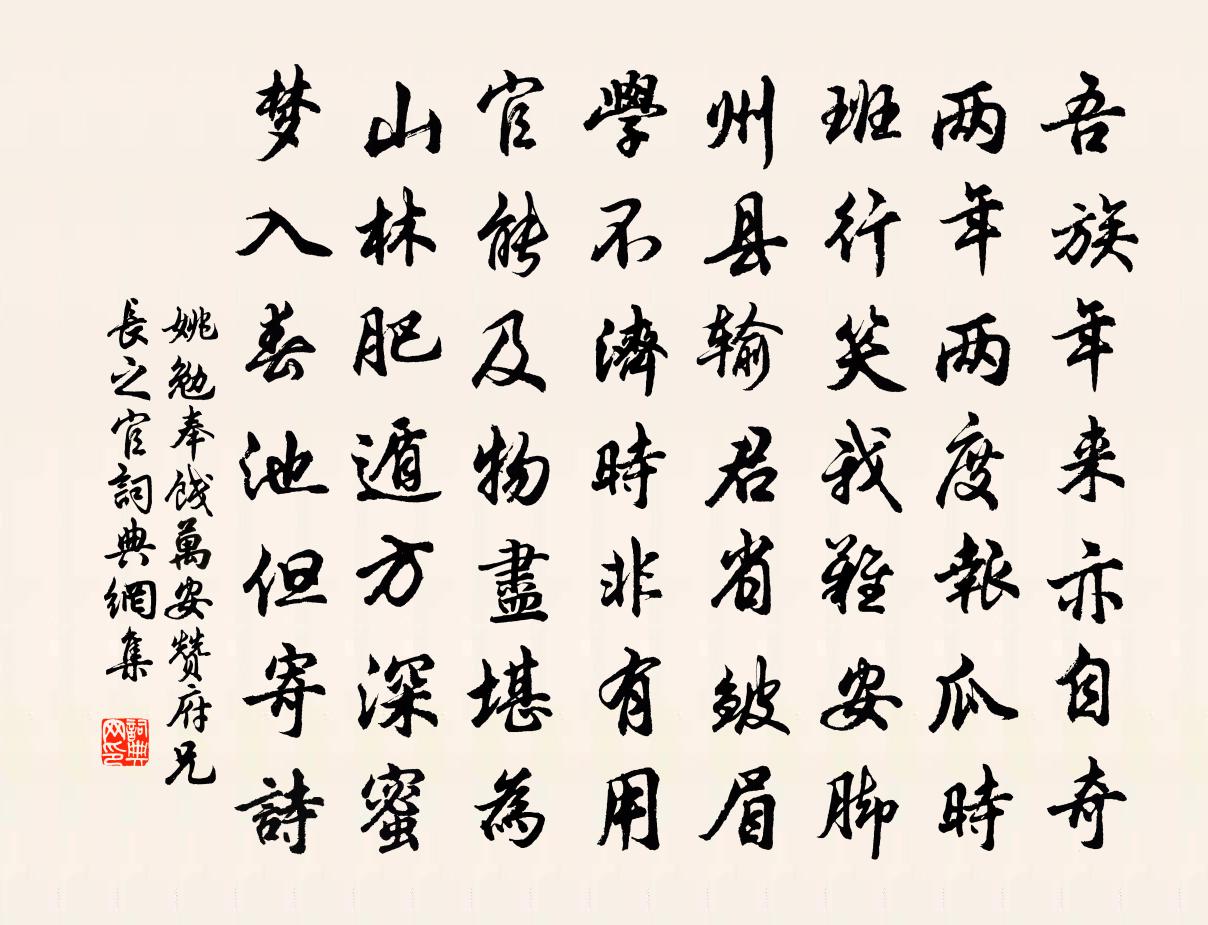 吾族年来亦自奇
两年两度報瓜时
班行笑我難安脚
州县输君省皱眉
學不濟時非有用
官能及物盡堪為
山林肥遁方深蜜
梦入春池但寄詩
姚勉奉餞萬安贊府兄
長之官詞典網集
詞典网印